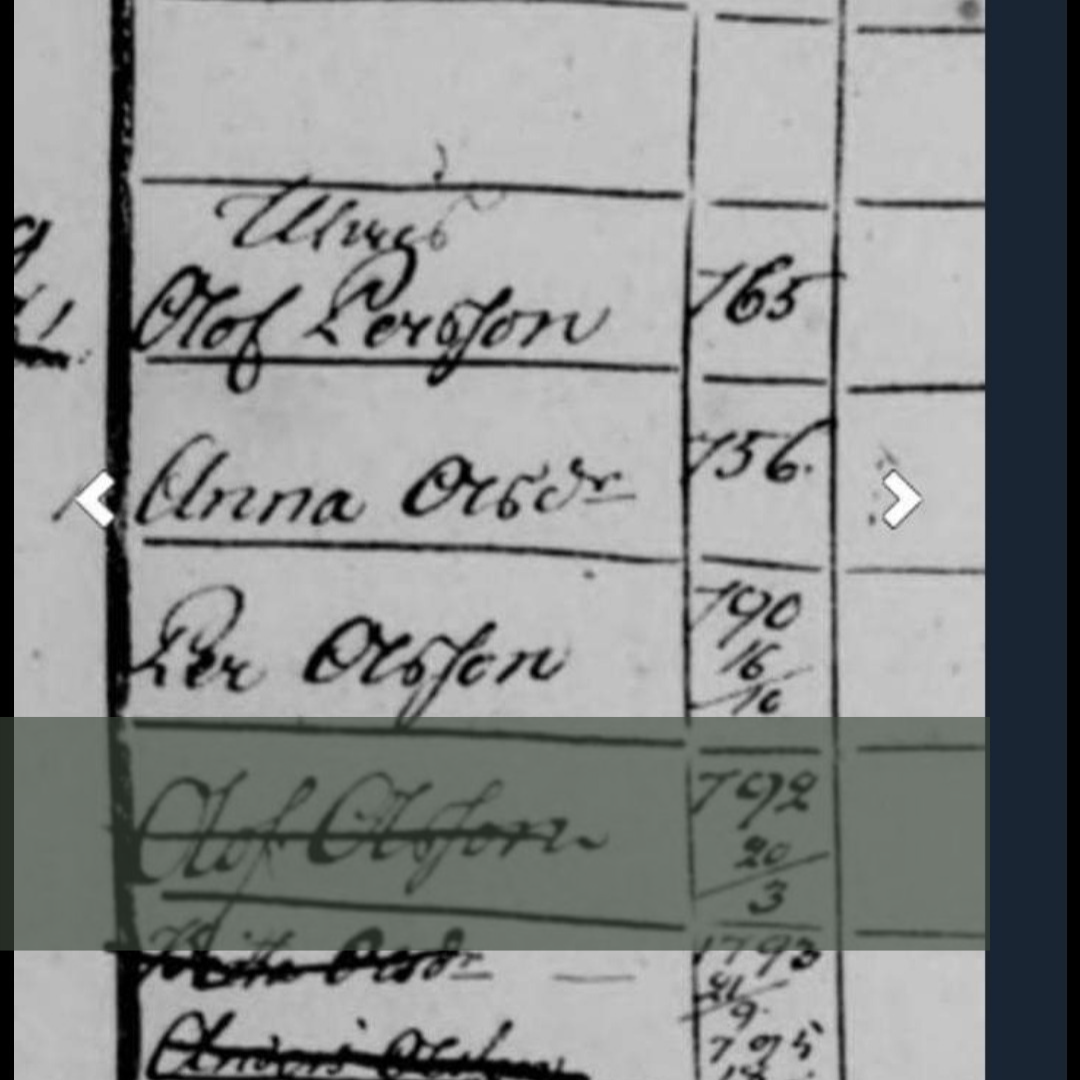 Olof Persson 765
Anna Olsdr 756.
Per Olsson 790
16/10
Olof Olsson 792
20/3
Olsdr 1793
21/9
Anders Olsson 795